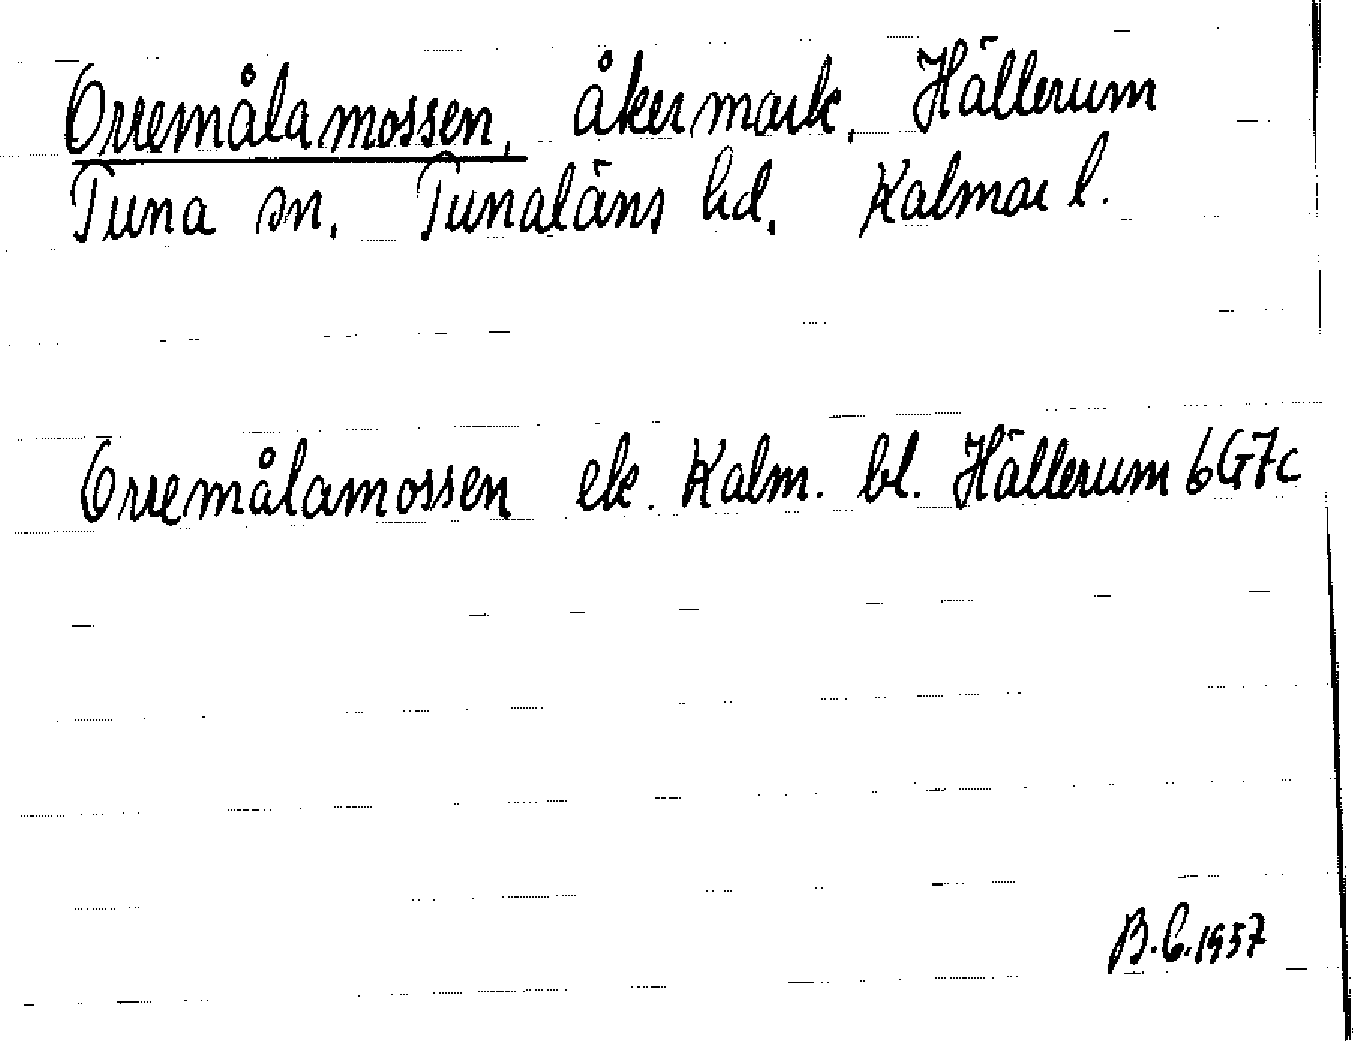 Orremålamossen, åkermark, Hällerum
Tuna sn. Tunaläns hd. Kalmar l.
Orremålamossen ek. Kalm. bl. Hällerum 6G7c
B.C.1957